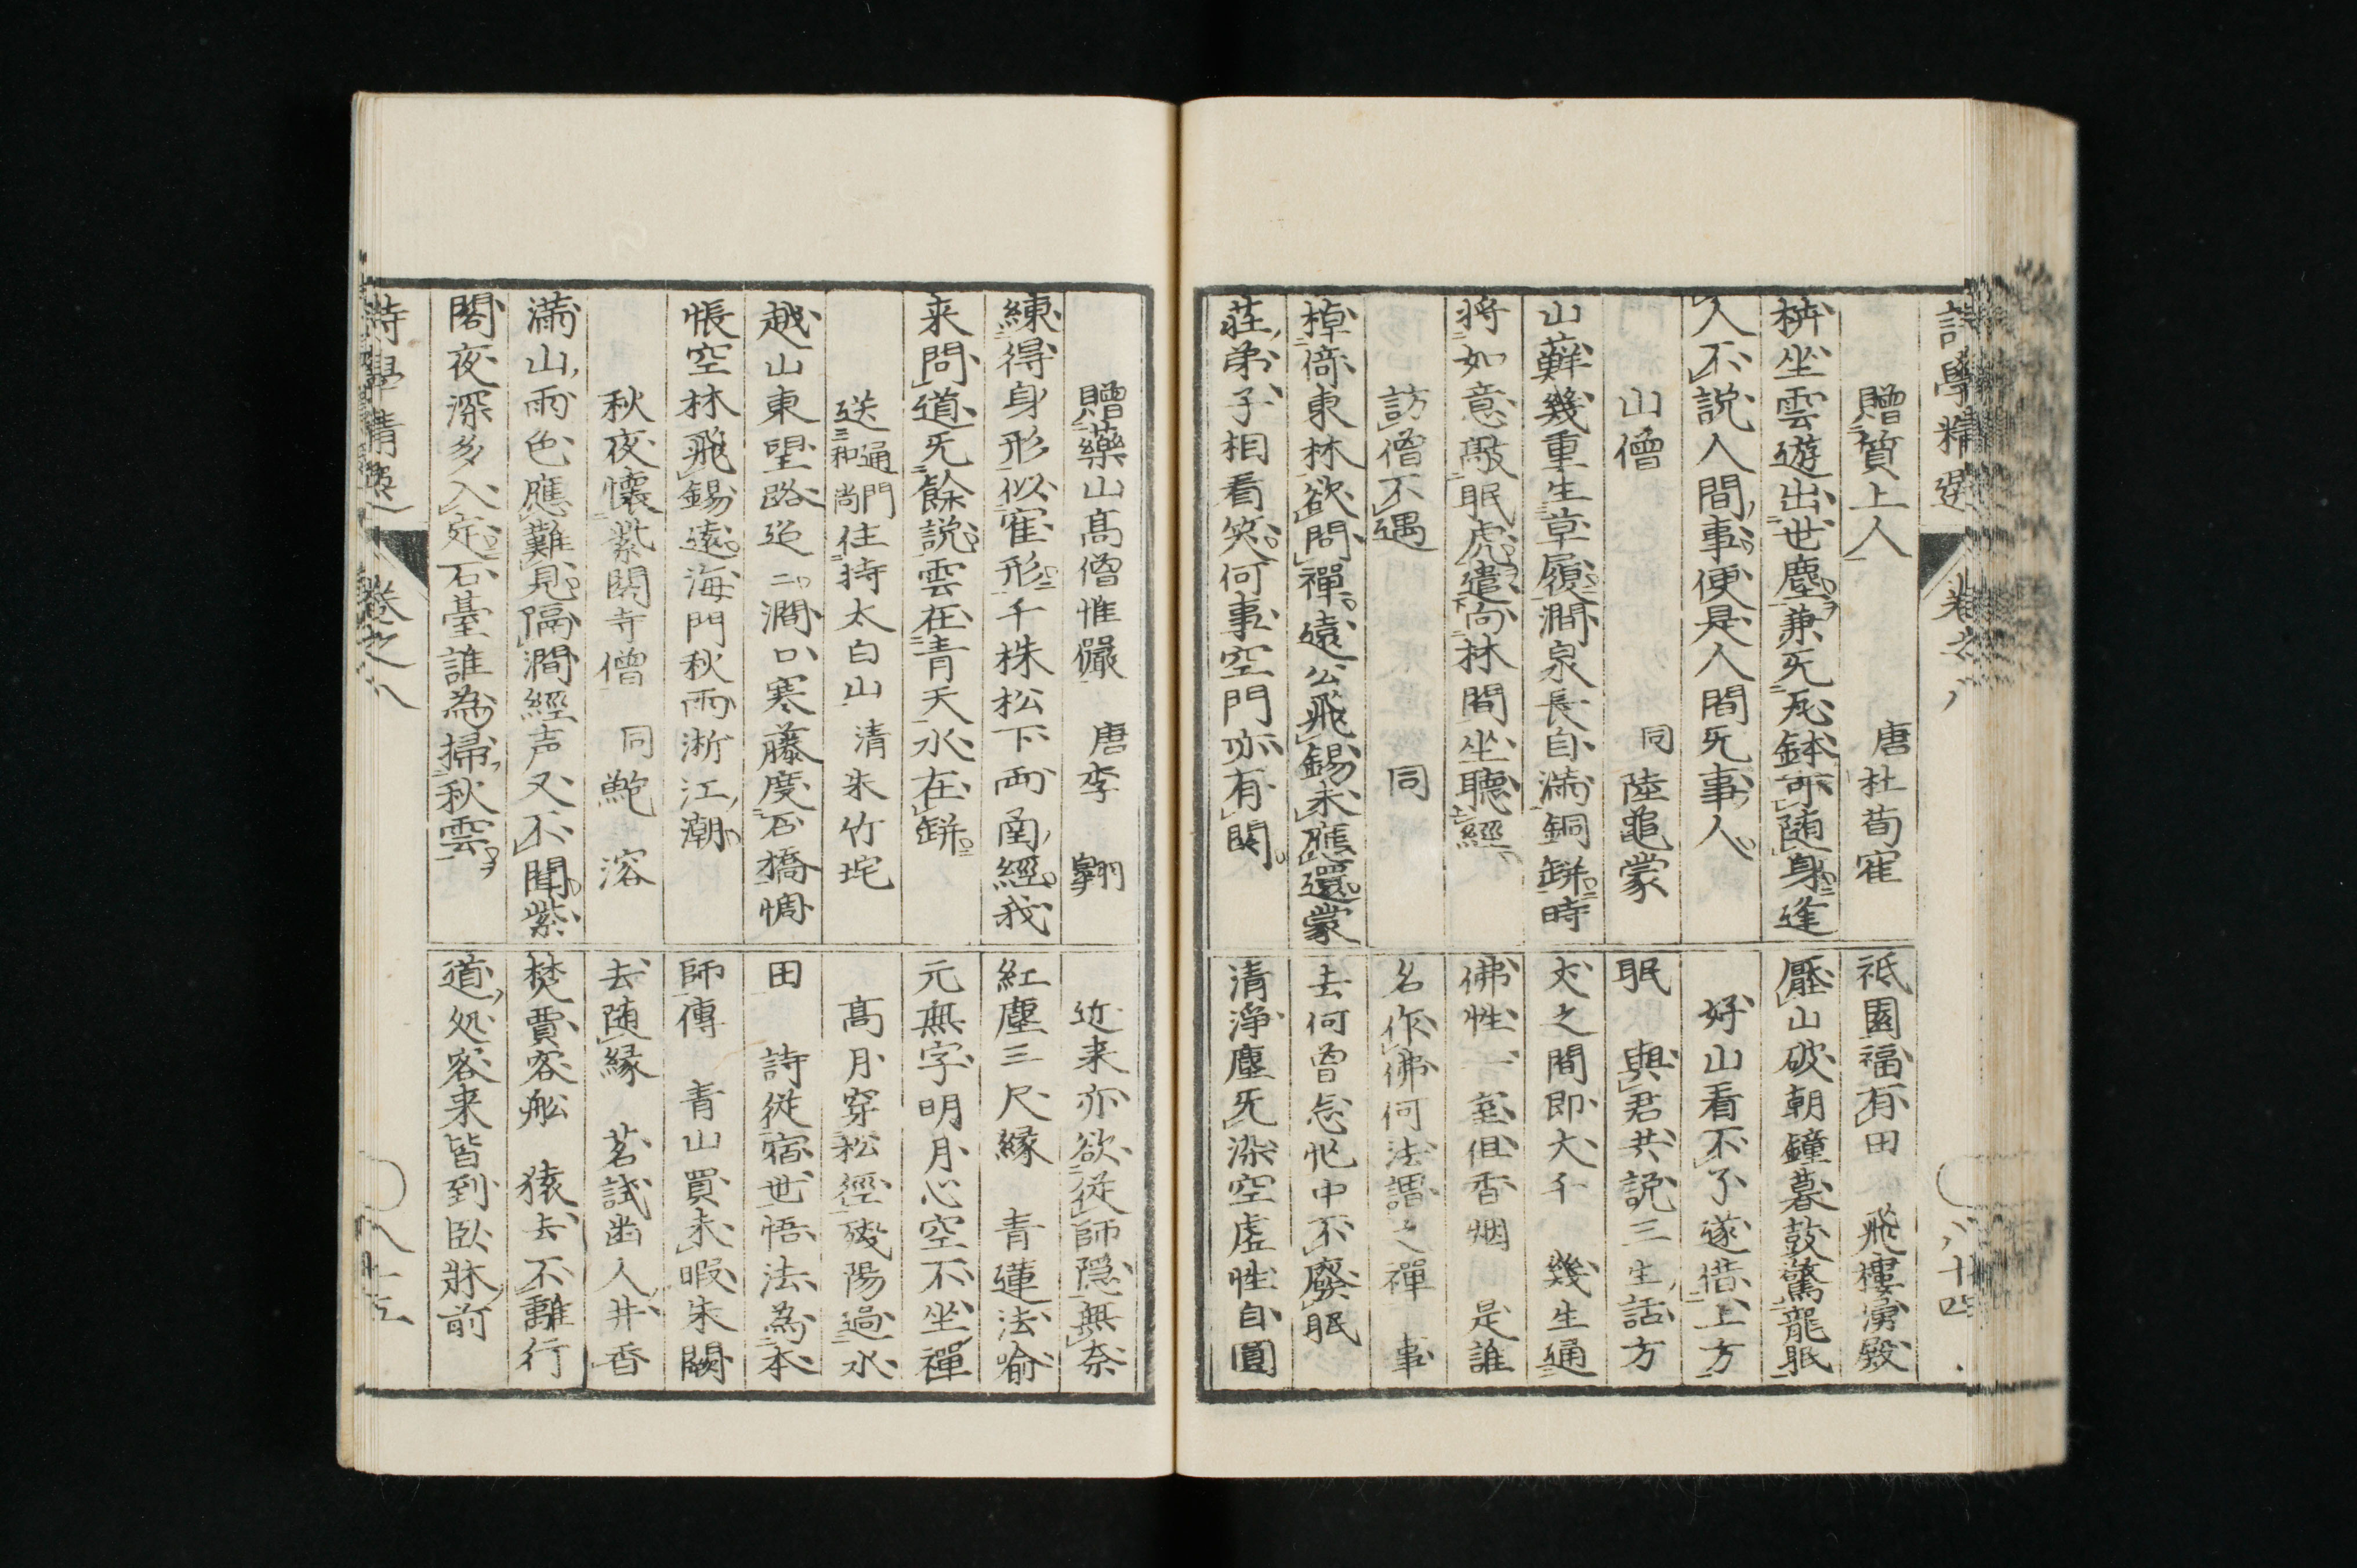 詩學精選 卷之八 八十四
贈質上人 唐杜荀寉
枿坐雲遊出世塵兼旡瓶鉢可随身逢
人不說人間事便是人間旡事人
山僧 同陸龜蒙
山蘚幾重生草履澗泉長自满銅缾時
将如意敲眠虎遣向林間坐聽經
訪僧不遇 同
棹倚東林欲問禪遠公飛錫未應還蒙
莊弟子相看笑何事空門亦有関
祇園福有田 飛樓湧殿
壓山破朝鐘暮鼓驚龍眠
好山看不了遂借上方
眠 與君共説三生話方
丈之間即大千 幾生通
佛性一室但香烟 是誰
名作佛何法謂之禪 事
去何曾忘忙中不廢眠
清浄塵旡染空虚性自圓
贈藥山髙僧惟儼 唐李翺
練得身形似寉形千株松下兩凾經我
来問道旡餘説雲在青天水在缾
送通門和尚住持太白山 清朱竹垞
越山東望路迢二澗口寒藤度石橋惆
悵空林飛錫遠海門秋雨淅江潮
秋夜懷紫閣寺僧 同鮑溶
满山雨色應難見隔澗經声又不聞紫
閣夜深多入定石臺誰為掃秋雲
近来亦欲従師隠無奈
紅塵三尺縁 青蓮法喻
元無字明月心空不坐禪
髙月穿松徑殘陽過水
田 詩従宿世悟法為本
師傳 青山買未暇朱闕
去随縁 茗試幽人井香
焚賈客舩 猿去不離行
道処客来皆到臥牀前
詩學精選 卷之八 八十五